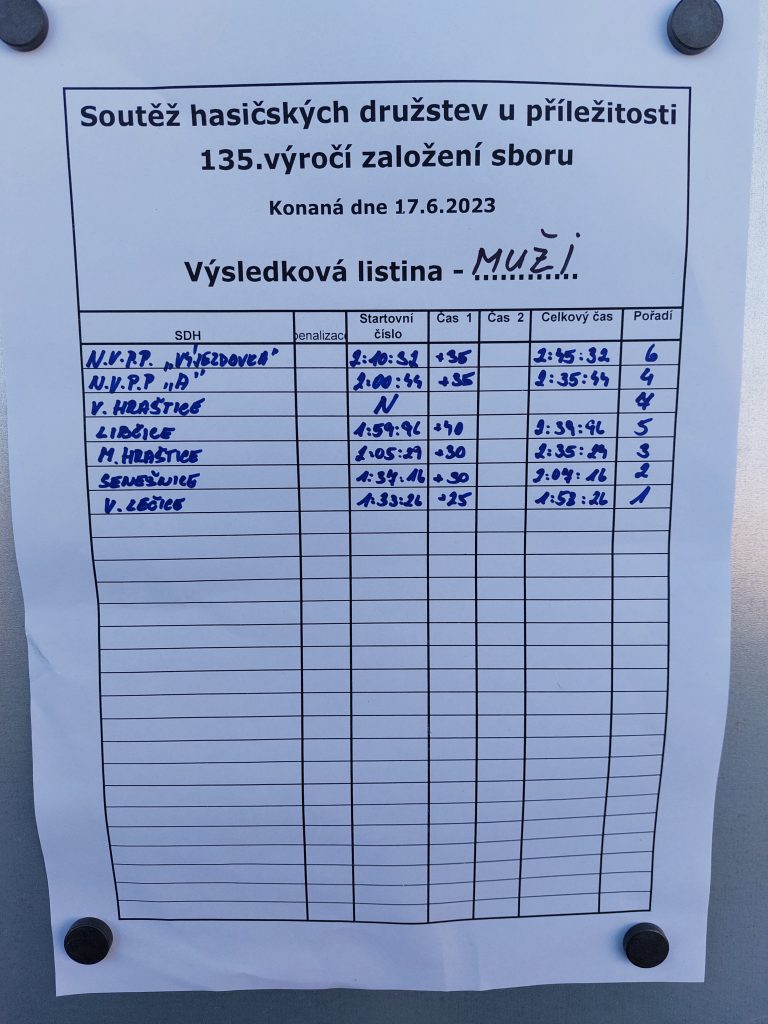 Soutěž hasičských družstev u příležitosti
135.výročí založení sboru
Konaná dne 17.6.2023
Výsledková listina - MUŽI
SDH penalizace Startovní číslo Čas 1 Čas 2 Celkový čas Pořadí
N.V.P.P. „VÝJEZDOVKA" 2:10:32 +35 2:45:32 6
N.V.P.P „A" 2:00:44 +35 2:35:44 4
V. HRAŠTICE N 7
LIBČICE 1:59:96 +40 2:39:96 5
M. HRAŠTICE 2:05:29 +30 2:35:29 3
SENEŠNICE 1:37:16 +30 2:07:16 2
V. LEČICE 1:33:26 +25 1:58:26 1